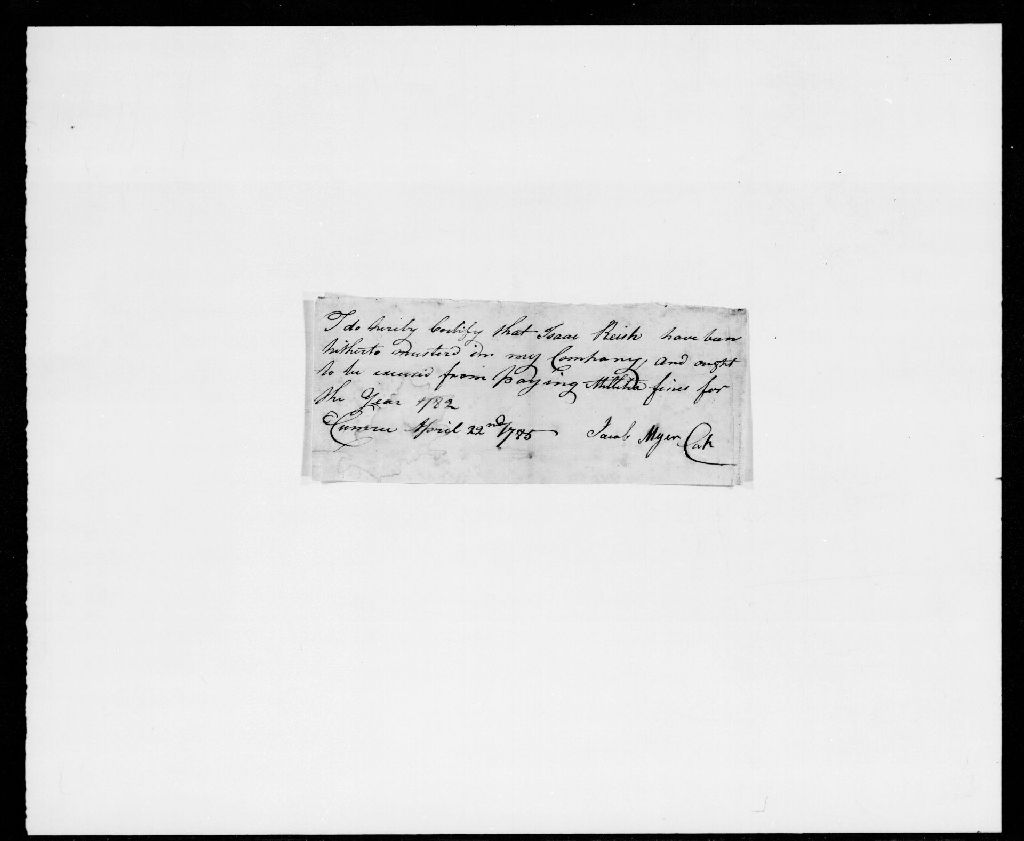 I do hereby Certify that Isaac Reish have been
hitherto musterd in my Company, and ought
to be excused from paying Militia fines for
the Year 1782
Cumru April 22nd 1785 Jacob Myer Capt